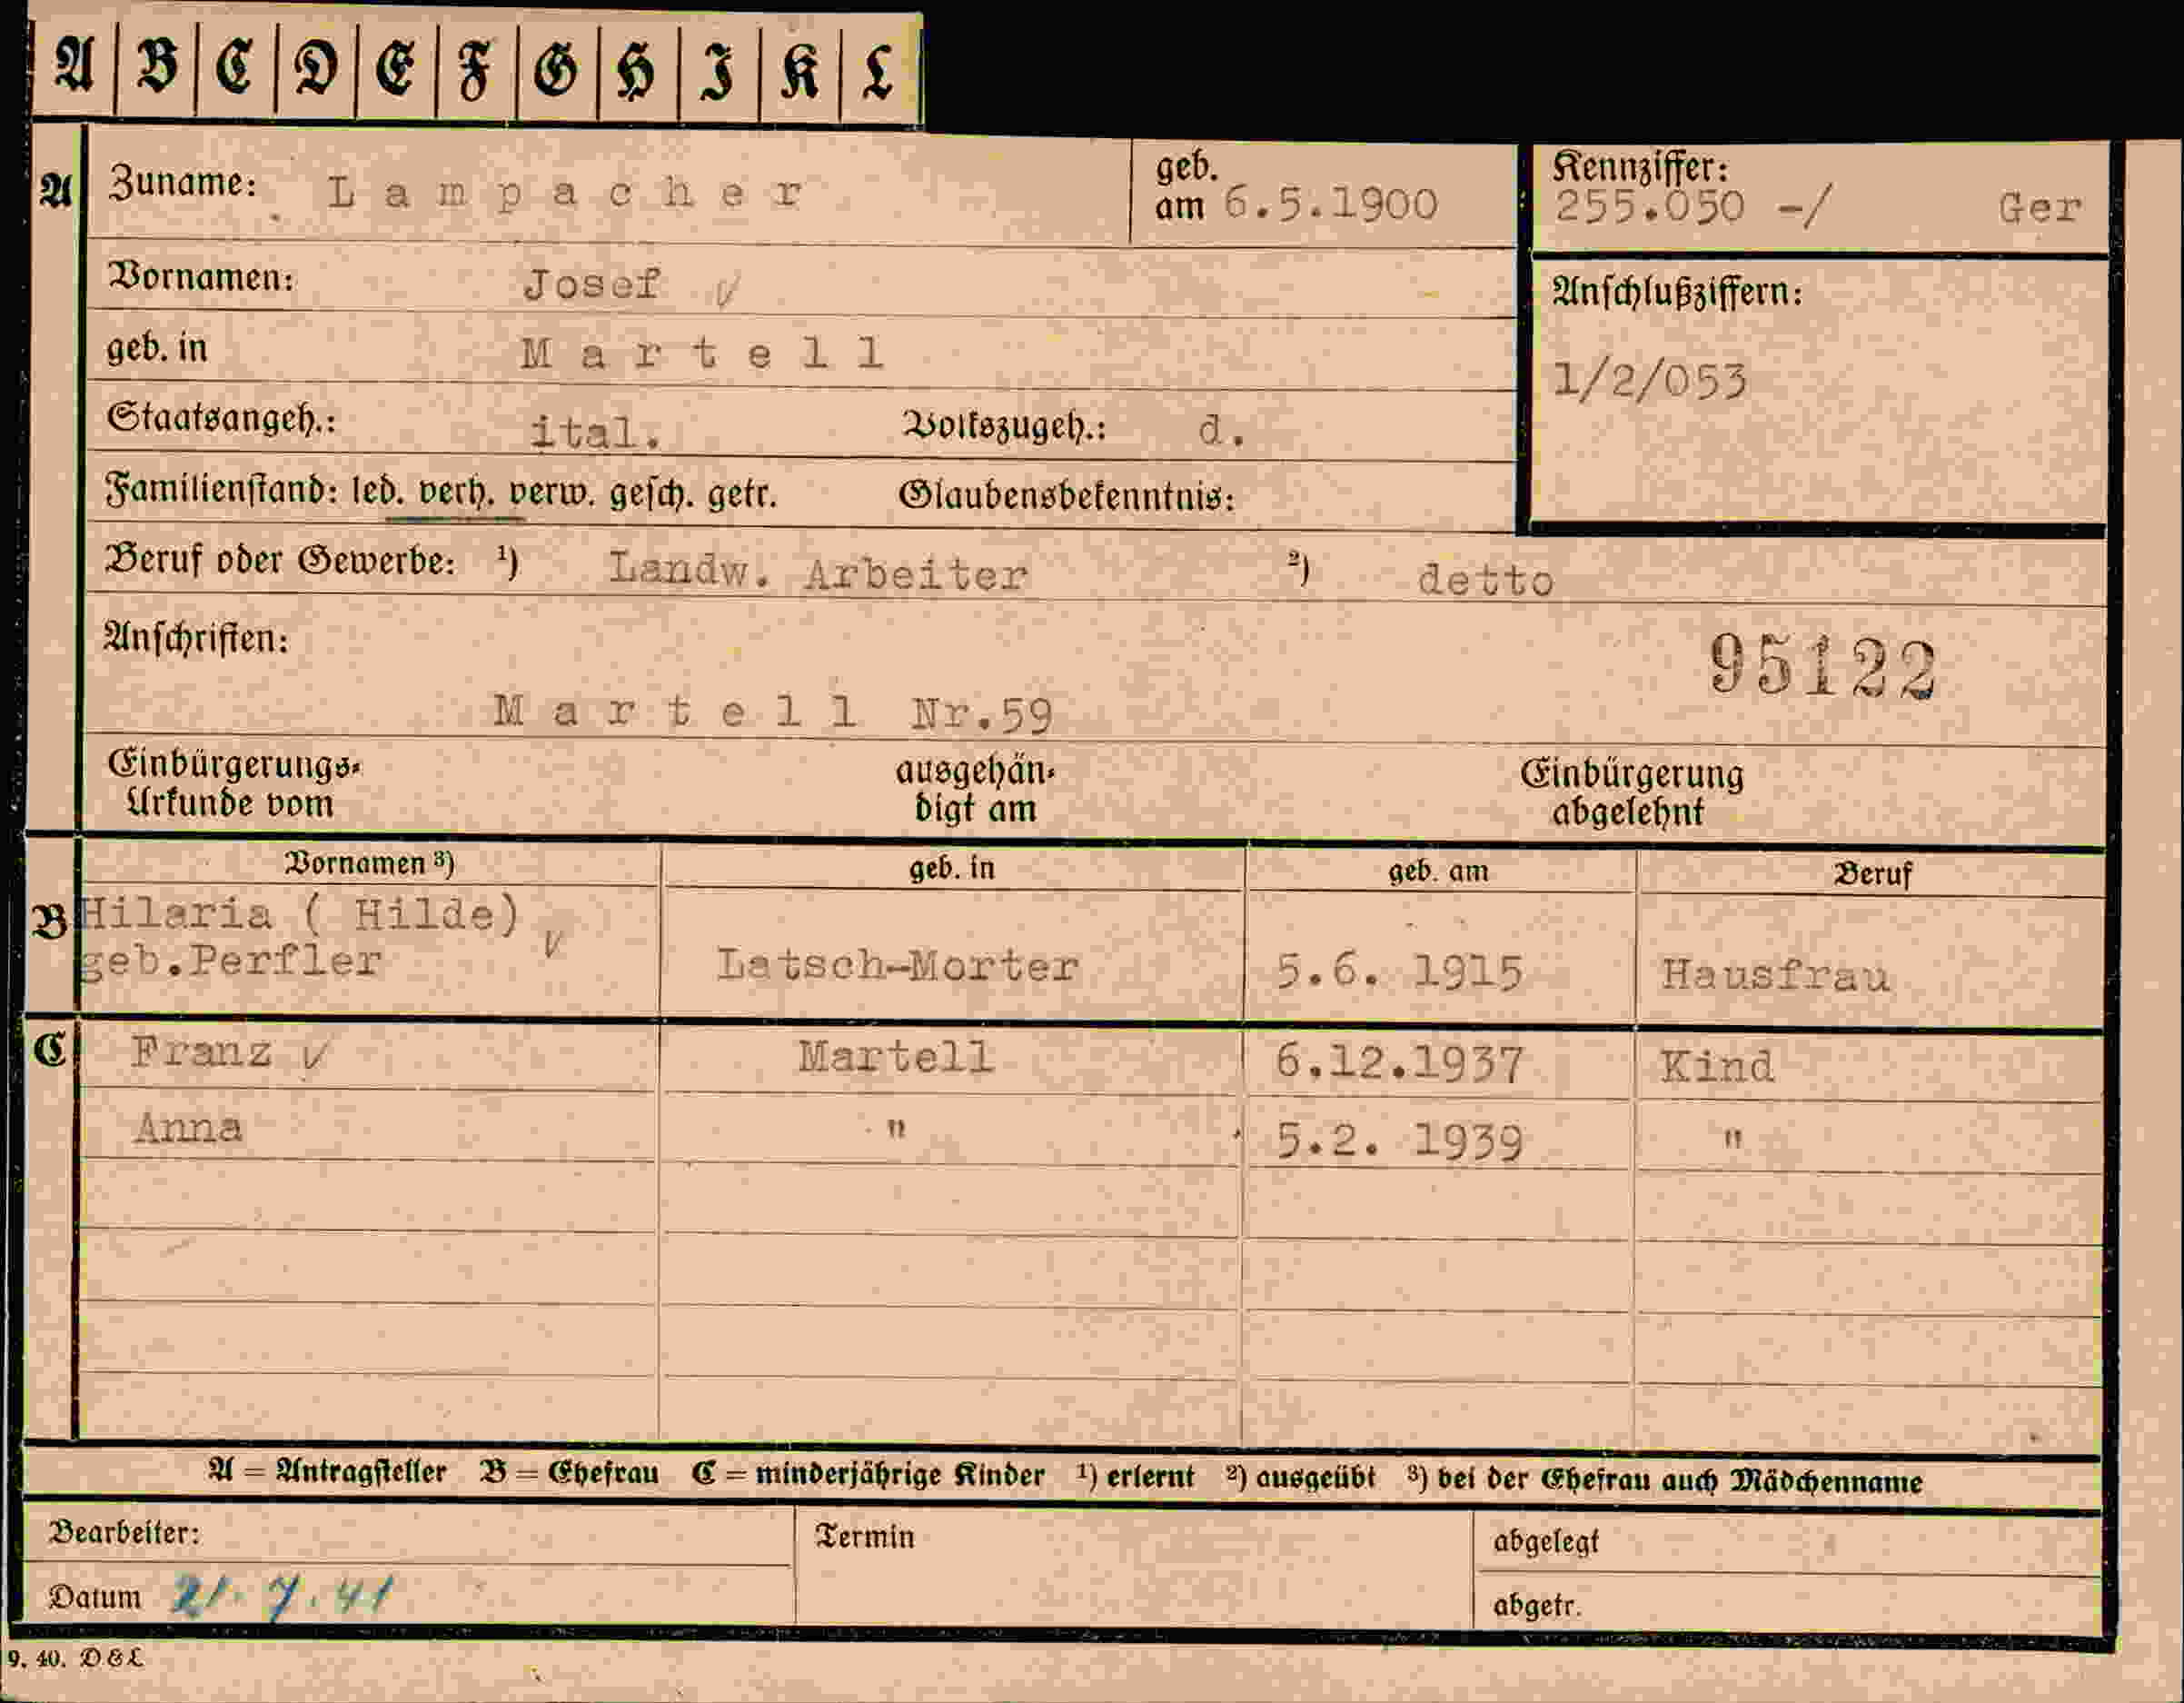 A B C D E F G H I K L
A Zuname: Lampacher geb. am 6.5.1900 Kennziffer: 255.050 -/ Ger
Vornamen: Josef
Anschlußziffern:
geb. in Martell
1/2/053
Staatsangeh.: ital. Volkszugeh.: d.
Familienstand: led. verh. verw. gesch. getr. Glaubensbekenntnis:
Beruf oder Gewerbe: 1) Landw. Arbeiter 2) detto
Anschriften:
95122
Martell Nr.59
Einbürgerungs- ausgehän- Einbürgerung
Urkunde vom digt am abgelehnt
Vornamen 3) geb. in geb. am Beruf
B Hilaria ( Hilde)
geb.Perfler Latsch-Morter 5.6. 1915 Hausfrau
C Franz Martell 6.12.1937 Kind
Anna " 5.2. 1939 "
A = Antragsteller B = Ehefrau C = minderjährige Kinder 1) erlernt 2) ausgeübt 3) bei der Ehefrau auch Mädchenname
Bearbeiter: Termin abgelegt
Datum 21.7.41 abgetr.
9. 40. D&L